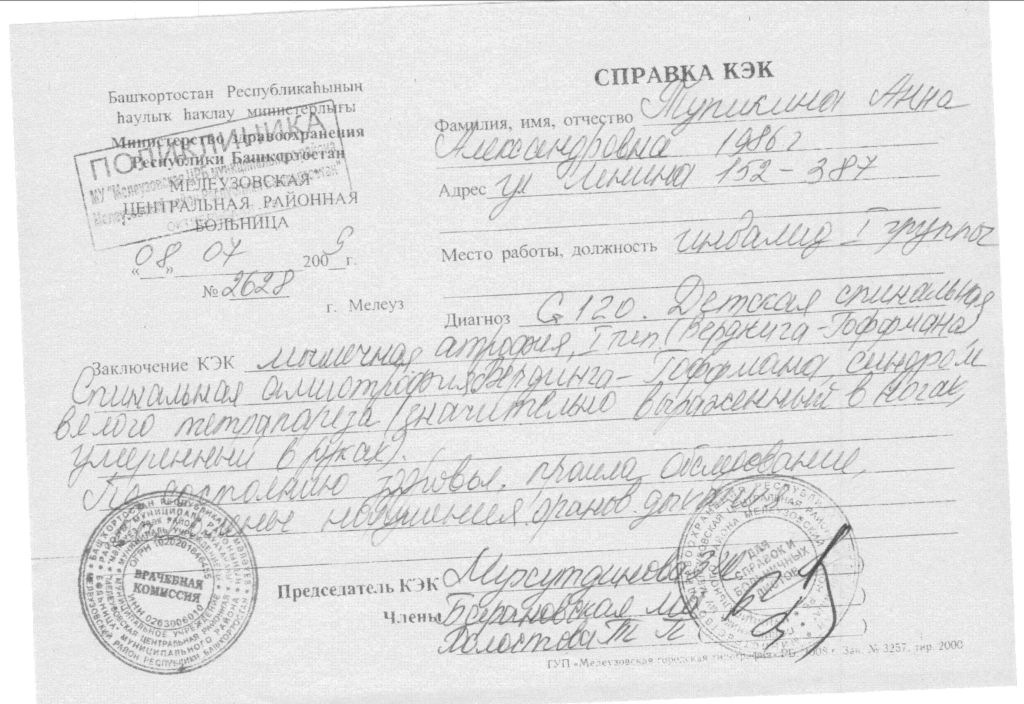 Башкортостан Республикаһының
һаулыҡ һаҡлау министерлығы
Министерство здравоохранения
Республики Башкортостан
МЕЛЕУЗОВСКАЯ
ЦЕНТРАЛЬНАЯ РАЙОННАЯ
БОЛЬНИЦА
ПОЛИКЛИНИКА
МУ "Мелеузовская ЦРБ муниципального района
Мелеузовский район
«08» 07 2009 г.
№ 2628
г. Мелеуз
СПРАВКА КЭК
Фамилия, имя, отчество Тупикина Анна
Александровна 1986 г
Адрес ул Ленина 152-387
Место работы, должность инвалид I группы
Диагноз G 120. Детская спинальная
Заключение КЭК мышечная атрофия, I тип (Верднига-Гоффмана)
Спинальная амиотрофия Вердинга-Гоффмана, синдром
вялого тетрапареза (значительно выраженный в ногах,
умеренный в руках).
По состоянию здоровья прошла обследование,
нарушения органов
Председатель КЭК
Члены Барановская
Холостова Т П
ВРАЧЕБНАЯ
КОМИССИЯ
ДЛЯ
СПРАВОК И
БОЛЬНИЧНЫХ
ЛИСТОВ
ГУП «Мелеузовская городская типография» РБ, 2008 г. Зак. № 3257, тир. 2000